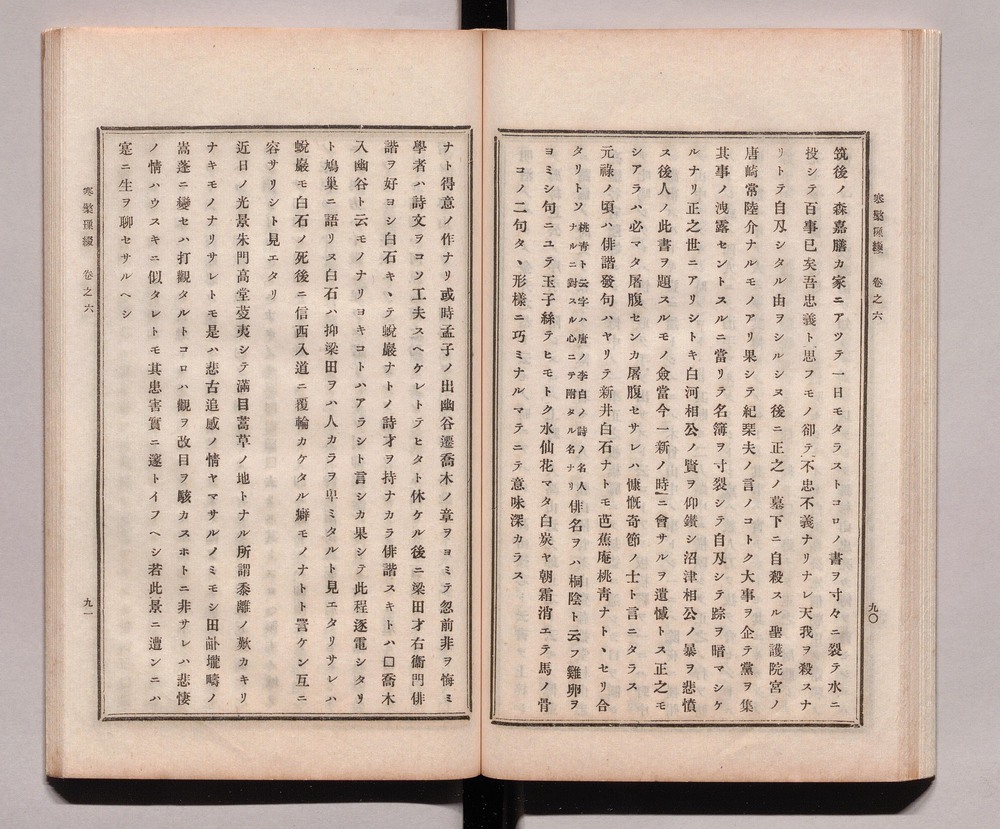 寒檠璅綴 卷之六
九〇
筑後ノ森嘉膳カ家ニアツテ一日モタラストコロノ書ヲ寸々ニ裂テ水ニ
投シテ百事已矣吾忠義ト思フモノ卻テ不忠不義ナリナレ天我ヲ殺スナ
リトテ自刄シタル由ヲシルシヌ後ニ正之ノ墓下ニ自殺スル聖護院宮ノ
唐崎常陸介ナルモノアリ果シテ紀栞夫ノ言ノコトク大事ヲ企テ黨ヲ集
其事ノ洩露セントスルニ當リテ名簿ヲ寸裂シテ自刄シテ踪ヲ暗マシケ
ルナリ正之世ニアリシトキ白河相公ノ賢ヲ仰鑽シ沼津相公ノ暴ヲ悲憤
ス後人ノ此書ヲ題スルモノ僉當今一新ノ時ニ會サルヲ遺憾トス正之モ
シアラハ必マタ屠腹センカ屠腹セサレハ慷慨奇節ノ士ト言ニタラス
元祿ノ頃ハ俳諧發句ハヤリテ新井白石ナトモ芭蕉庵桃靑ナトヽセリ合
タリトソ桃靑ト云字ハ唐ノ李白ノ詩ノ名人ナルニ對スル心ニテ附タル名ナリ俳名ヲハ桐陰ト云フ雞卵ヲ
ヨミシ句ニユテ玉子絲テヒモトク水仙花マタ白炭ヤ朝霜消エテ馬ノ骨
コノ二句タヽ形樣ニ巧ミナルマテニテ意味深カラス
ナト得意ノ作ナリ或時孟子ノ出幽谷遷喬木ノ章ヲヨミテ忽前非ヲ悔ミ
學者ハ詩文ヲコソ工夫スヘケレトテヒタト休ケル後ニ梁田才右衞門俳
諧ヲ好ヨシ白石キヽテ蛻巖ナトノ詩才ヲ持ナカラ俳諧スキトハ□喬木
入幽谷ト云モノナリヨキコトハアラシト言シカ果シテ此程逐電シタリ
ト鳩巢ニ語リヌ白石ハ抑梁田ヲハ人カラヲ卑ミタルト見エタリサレハ
蛻巖モ白石ノ死後ニ信西入道ニ覆輪カケタル癖モノナトト詈ケン互ニ
容サリシト見エタリ
近日ノ光景朱門高堂芟夷シテ滿目蒿草ノ地トナル所謂黍離ノ歎カキリ
ナキモノナリサレトモ是ハ悲古追感ノ情ヤマサルノミモシ田訷壠疇ノ
嵩蓬ニ變セハ打觀タルトコロハ觀ヲ改目ヲ駭カスホトニ非サレハ悲悽
ノ情ハウスキニ似タレトモ其患害實ニ邃トイフヘシ若此景ニ遭ンニハ
寔ニ生ヲ聊セサルヘシ
寒檠璅綴 卷之六
九一